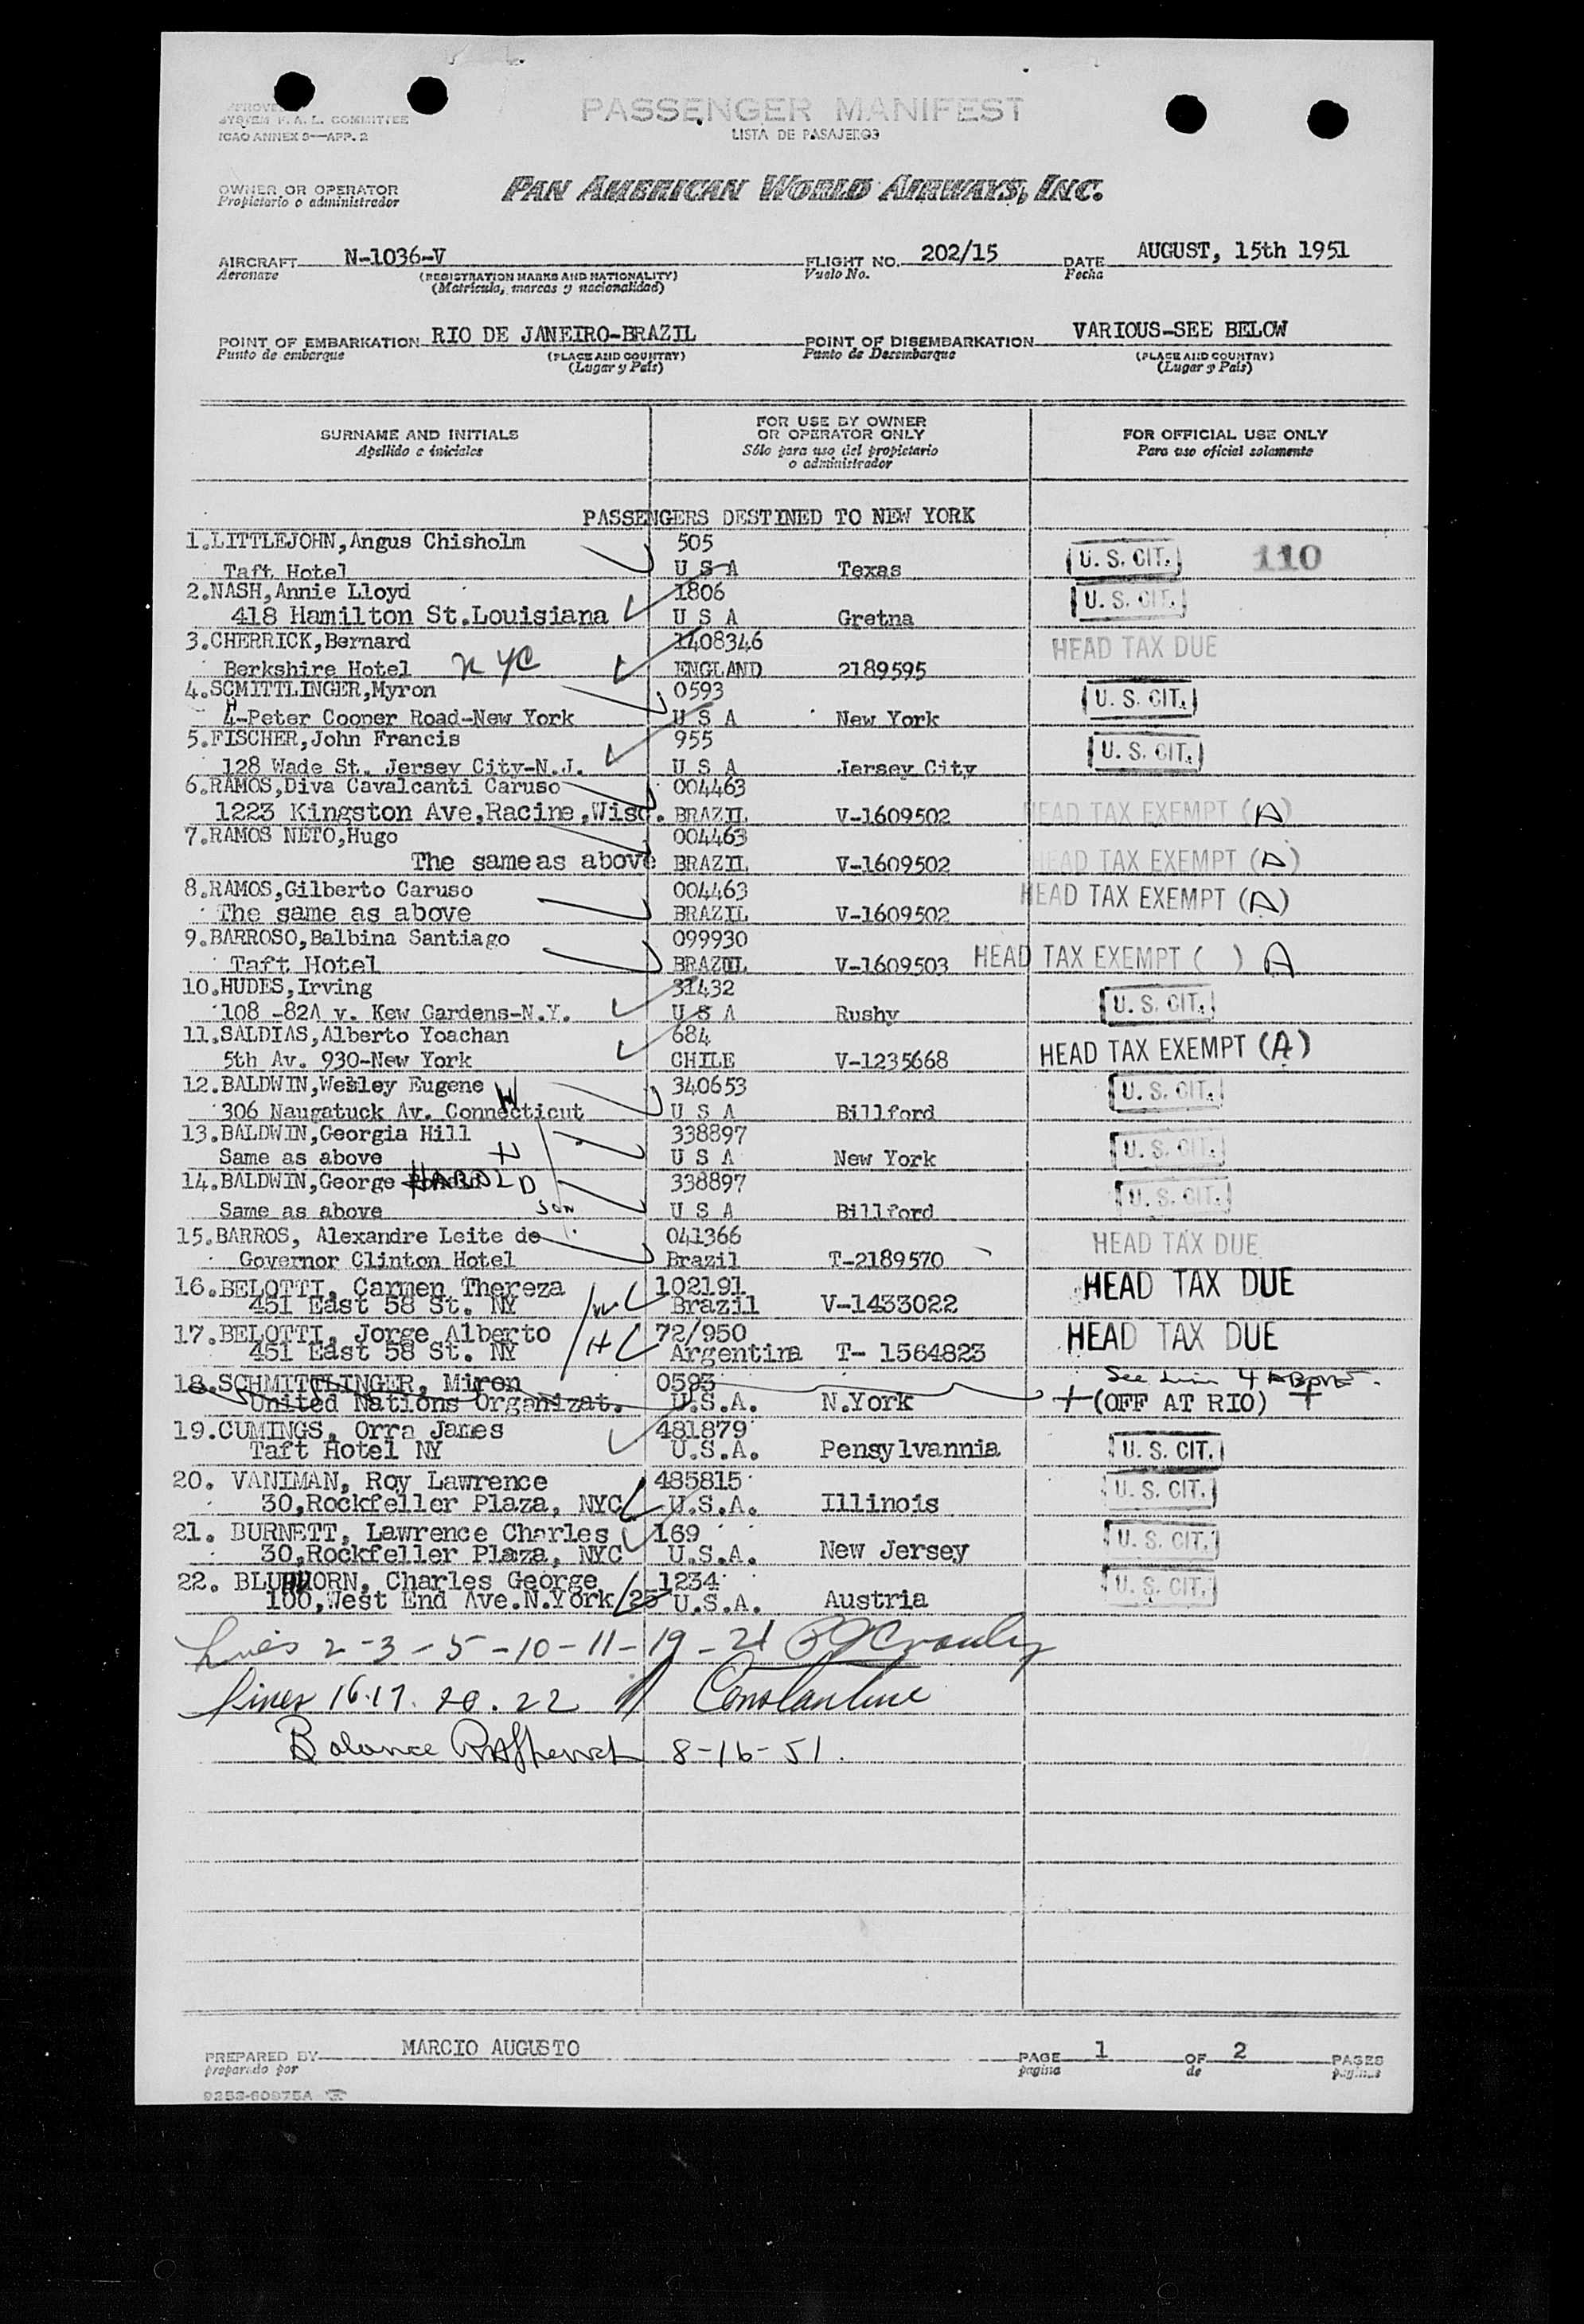 SYSTEM F. A. L. COMMITTEE
ICAO ANNEX 9—APP. 2
PASSENGER MANIFEST
LISTA DE PASAJEROS
OWNER OR OPERATOR
Propietario o administrador
PAN AMERICAN WORLD AIRWAYS, INC.
AIRCRAFT N-1036-V FLIGHT NO. 202/15 DATE AUGUST, 15th 1951
Aeronave (REGISTRATION MARKS AND NATIONALITY) Vuelo No. Fecha
(Matrícula, marcas y nacionalidad)
POINT OF EMBARKATION RIO DE JANEIRO-BRAZIL POINT OF DISEMBARKATION VARIOUS-SEE BELOW
Punto de embarque (PLACE AND COUNTRY) Punto de Desembarque (PLACE AND COUNTRY)
(Lugar y País) (Lugar y País)
SURNAME AND INITIALS
Apellido e iniciales
FOR USE BY OWNER
OR OPERATOR ONLY
Sólo para uso del propietario
o administrador
FOR OFFICIAL USE ONLY
Para uso oficial solamente
PASSENGERS DESTINED TO NEW YORK
1.LITTLEJOHN,Angus Chisholm 505
Taft Hotel U S A Texas U. S. CIT. 110
2.NASH,Annie Lloyd 1806
418 Hamilton St.Louisiana U S A Gretna U. S. CIT.
3.CHERRICK,Bernard 1408346
Berkshire Hotel N YC ENGLAND 2189595 HEAD TAX DUE
4.SCMITTLINGER,Myron 0593
H
4-Peter Cooper Road-New York U S A New York U. S. CIT.
5.FISCHER,John Francis 955
128 Wade St. Jersey City-N.J. U S A Jersey City U. S. CIT.
6.RAMOS,Diva Cavalcanti Caruso 004463
1223 Kingston Ave,Racine,Wisc. BRAZIL V-1609502 HEAD TAX EXEMPT (A)
7.RAMOS NETO,Hugo 004463
The same as above BRAZIL V-1609502 HEAD TAX EXEMPT (A)
8.RAMOS,Gilberto Caruso 004463
The same as above BRAZIL V-1609502 HEAD TAX EXEMPT (A)
9.BARROSO,Balbina Santiago 099930
Taft Hotel BRAZIL V-1609503 HEAD TAX EXEMPT ( ) A
10.HUDES,Irving 31432
108 -82A v. Kew Gardens-N.Y. U S A Rusby U. S. CIT.
11.SALDIAS,Alberto Yoachan 684
5th Av. 930-New York CHILE V-1235668 HEAD TAX EXEMPT (A)
12.BALDWIN,Wesley Eugene W 340653
306 Naugatuck Av. Connecticut U S A Billford U. S. CIT.
13.BALDWIN,Georgia Hill 338897
Same as above U S A New York U. S. CIT.
14.BALDWIN,George HAROLD 338897
Same as above son U S A Billford U. S. CIT.
15.BARROS, Alexandre Leite de 041366
Governor Clinton Hotel Brazil T-2189570 HEAD TAX DUE
16.BELOTTI, Carmen Thereza W 102191
451 East 58 St. NY Brazil V-1433022 HEAD TAX DUE
17.BELOTTI, Jorge Alberto H 72/950
451 East 58 St. NY Argentina T- 1564823 HEAD TAX DUE
18.SCHMITTLINGER, Miron 0593 See Line 4 ABOVE
United Nations Organizat. U.S.A. N.York (OFF AT RIO)
19.CUMINGS, Orra James 481879
Taft Hotel NY U.S.A. Pensylvannia U. S. CIT.
20. VANIMAN, Roy Lawrence 485815
30,Rockfeller Plaza, NYC U.S.A. Illinois U. S. CIT.
21. BURNETT, Lawrence Charles 169
30,Rockfeller Plaza, NYC U.S.A. New Jersey U. S. CIT.
22. BLUHHORN, Charles George 1234
100,West End Ave.N.York/25 U.S.A. Austria U. S. CIT.
Lines 2-3-5-10-11-19-21
Lines 16.17. 20. 22 Constantine
Balance 8-16-51.
PREPARED BY MARCIO AUGUSTO PAGE 1 OF 2 PAGES
preparado por página de páginas
9253-60975A